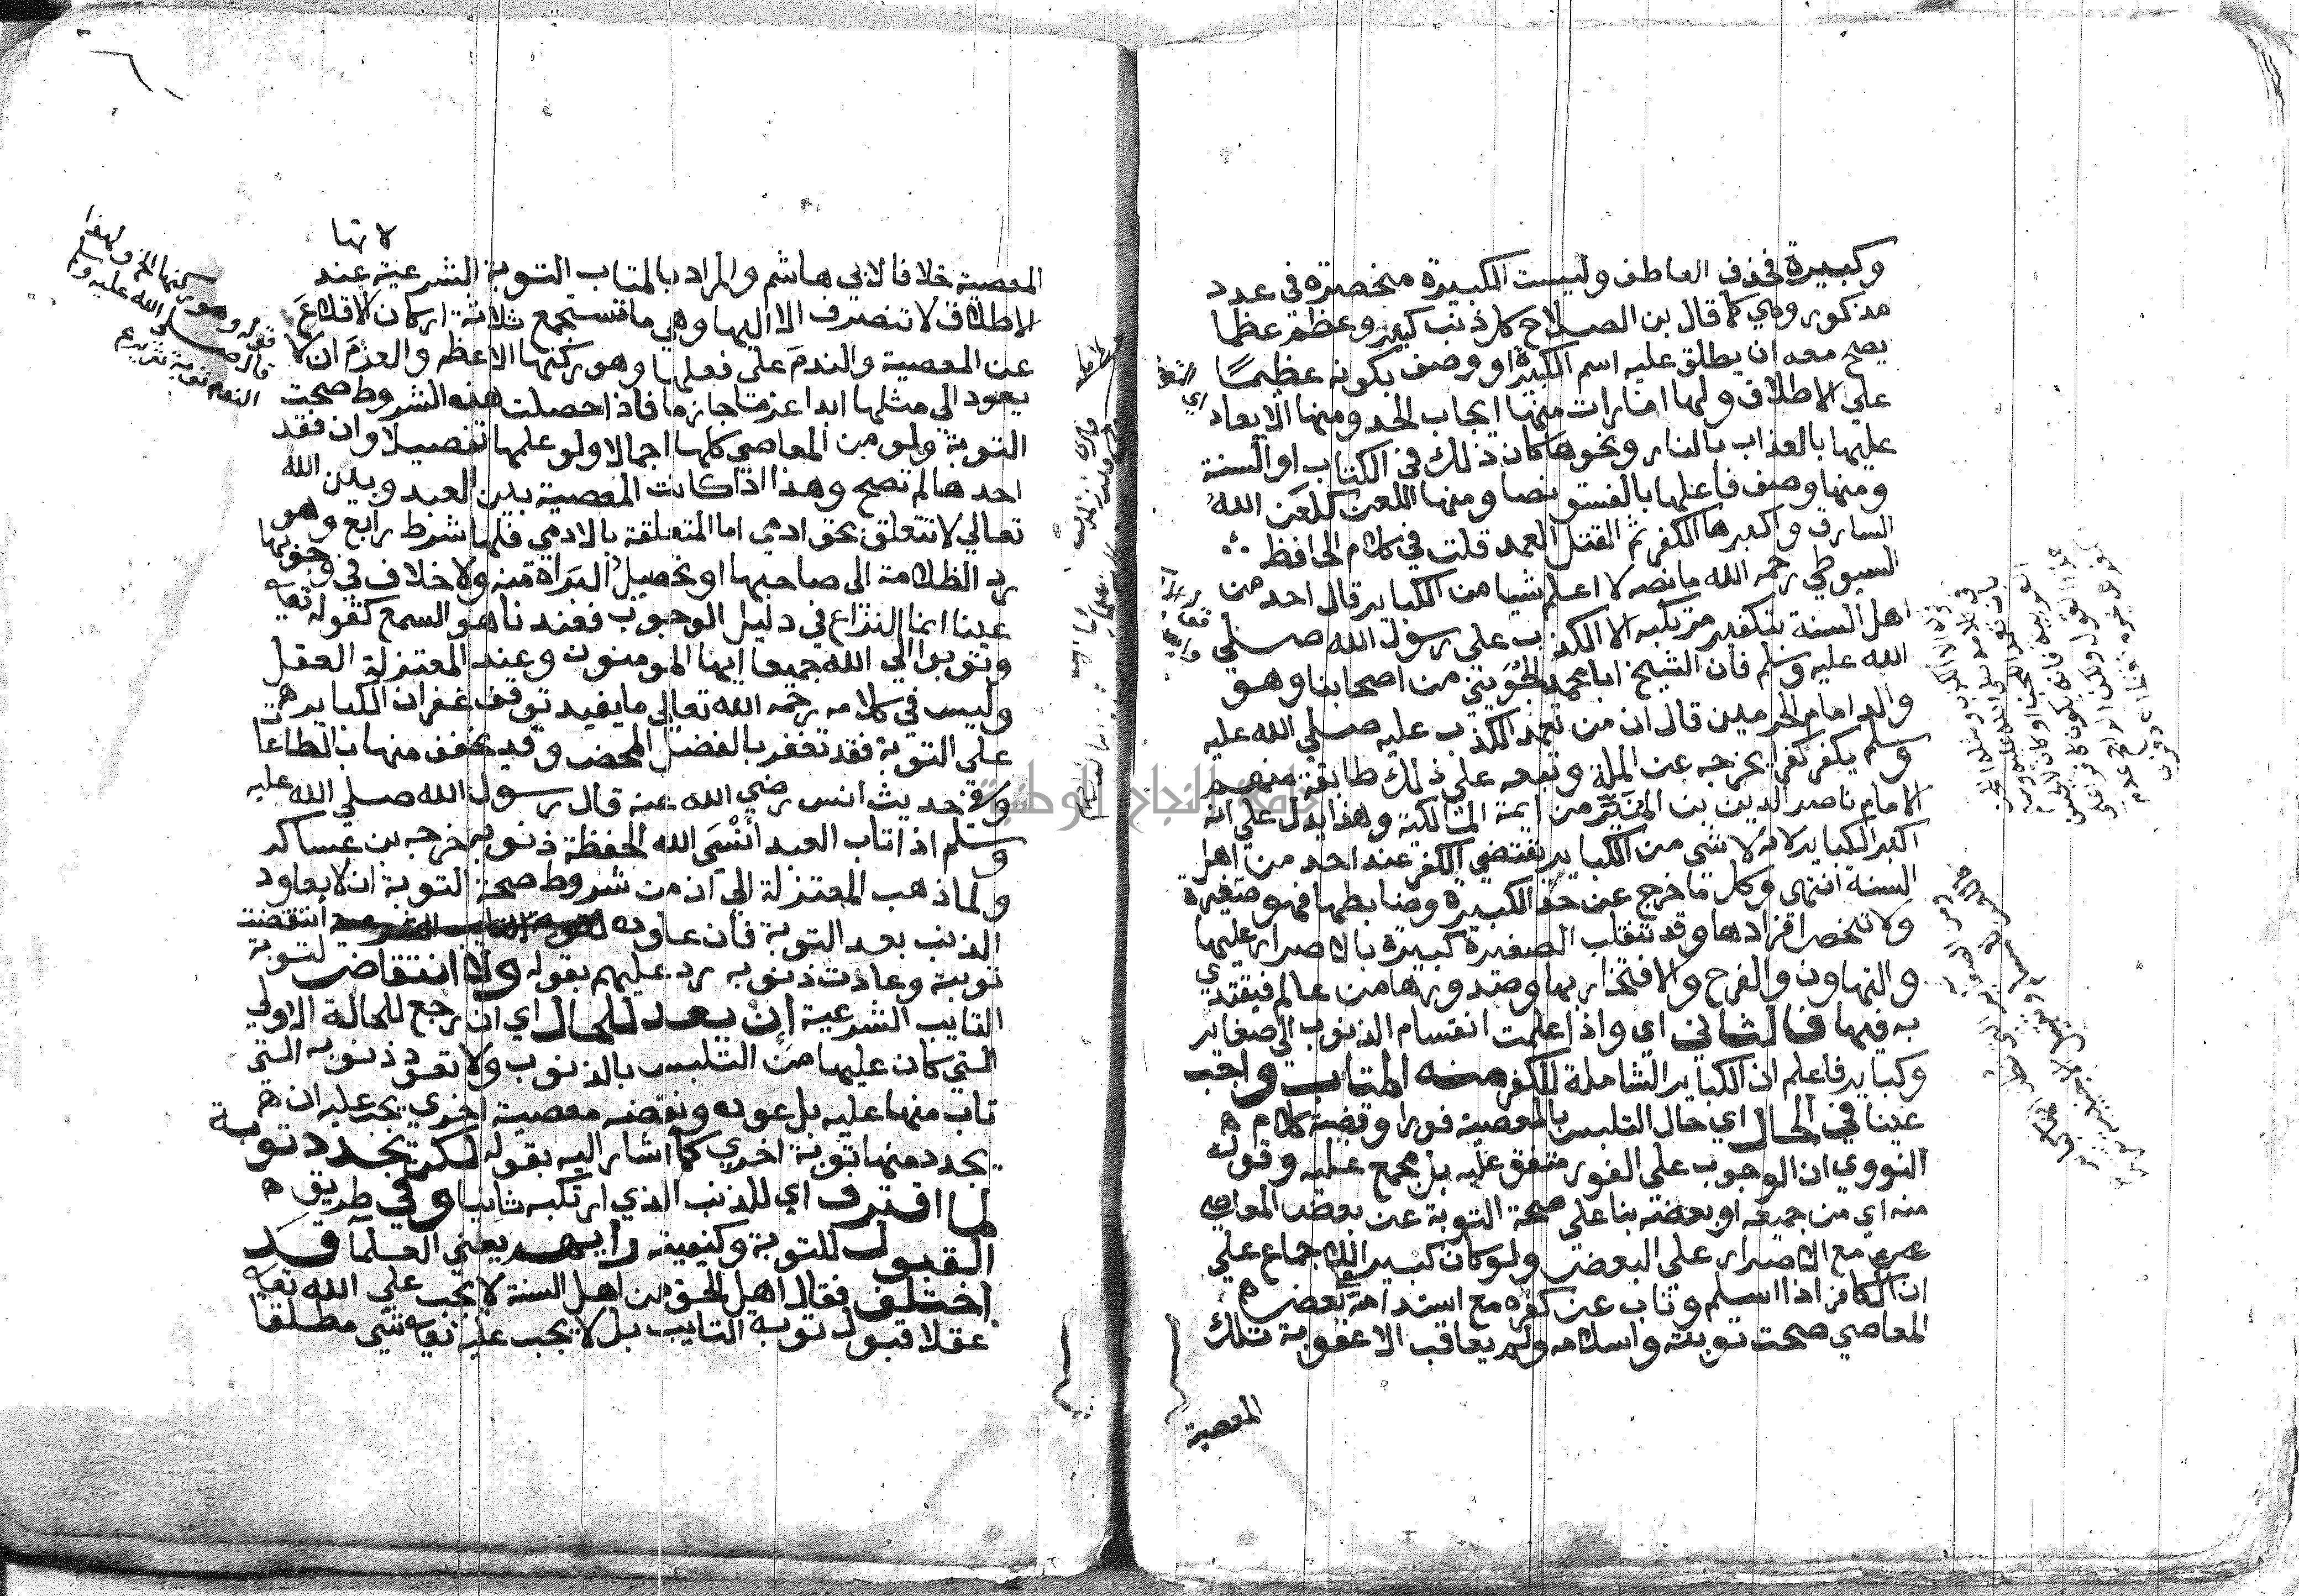 وكبيرة فحذف العاطف وليست الكبيرة منحصرة في عدد
مذكور وهي كما قال بن الصلاح كل ذنب كبير وعظم عظما
يصح معه ان يطلق عليه اسم الكبيرة او وصف بكونه عظيما
على الاطلاق ولها امارات منها ايجاب الحد ومنها الايعاد
عليها بالعذاب بالنار ونحوها كان ذلك في الكتاب او السنة
ومنها وصف فاعلها بالفسق نصا ومنها اللعن كلعن الله
السارق واكبرها الكفر ثم القتل العمد قلت في كلام الحافظ
السيوطي رحمه الله ما نصه لا اعلم شيا من الكباير قال احد من
اهل السنة بتكفير مرتكبه الا الكذب على رسول الله صلى
الله عليه وسلم فان الشيخ ابا محمد الجويني من اصحابنا وهو
والد امام الحرمين قال ان من تعمد الكذب عليه صلى الله عليه
وسلم يكفر كفرا يخرجه عن الملة وتبعه على ذلك طايفة منهم
الامام ناصر الدين بن المنير من ايمة المالكية وهذا يدل على انه
اكبر الكباير لانه لا شي من الكباير يقتضي الكفر عند احد من اهل
السنة انتهى وكل ما خرج عن حد الكبيرة وضابطها فهو صغيرة
ولا تنحصر افرادها وقد تنقلب الصغيرة كبيرة بالاصرار عليها
والتهاون والفرح والافتخار بها وصدورها من عالم فيقتدي
به فيها فالثاني اي واذا علمت انقسام الذنوب الى صغاير
وكباير فاعلم ان الكباير الشاملة للكفر منه المتاب واجب
عينا في الحال اي حال التلبس بالمعصية فورا وقضية كلام
النووي ان الوجوب على الفور متفق عليه بل مجمع عليه وقوله
منه اي من جميعه او بعضه بنا على صحة التوبة عن بعض المعاصي
مع الاصرار على البعض ولو كان كبيرا للاجماع على
ان الكافر اذا اسلم وتاب عن كفره مع استدامة بعض
المعاصي صحت توبته واسلامه ولم يعاقب الا عقوبة تلك
المعصية
لانها
المعصية خلافا لابي هاشم والمراد بالمتاب التوبة الشرعية عند
الاطلاق لا تنصرف الا اليها وهي ما تستجمع ثلاثة اركان الاقلاع
عن المعصية والندم على فعلها وهو ركنها الاعظم والعزم ان لا
يعود الى مثلها ابدا عزما جازما فاذا حصلت هذه الشروط صحت
التوبة ولو من المعاصي كلها اجمالا ولو علمها تفصيلا وان فقد
احدها لم تصح وهذا اذا كانت المعصية بين العبد وبين الله
تعالى لا تتعلق بحق ادمي اما المتعلقة بالادمي فلها شرط رابع وهو
رد الظلامة الى صاحبها او تحصيل البراة منه ولا خلاف في وجوبها
عينا انما النزاع في دليل الوجوب فعندنا هو السمع كقوله تعالى
وتوبوا الى الله جميعا ايها المومنون وعند المعتزلة العقل
وليس في كلامه رحمه الله تعالى ما يفيد توقف غفران الكباير
على التوبة فقد تغفر بالفضل المحض وقد يخفف منها بالطاعات
وفي حديث انس رضي الله عنه قال رسول الله صلى الله عليه
وسلم اذا تاب العبد أنسى الله الحفظة ذنوبه خرجه بن عساكر
ولما ذهب المعتزلة الى ان من شروط صحة التوبة ان لا يعاود
الذنب بعد التوبة فان عاوده انتقضت
توبته وعادت ذنوبه رد عليهم بقوله ولا انتقاض لتوبة
التايب الشرعية إن يعد للحال اي ان رجع للحالة الاولى
التي كان عليها من التلبس بالذنوب ولا تعود ذنوبه التي
تاب منها عليه بل عوده ونقضه معصية اخرى يجب عليه ان
يجدد منها توبة اخرى كما اشار اليه بقوله لكن يجدد توبة
لما اقترف اي للذنب الذي ارتكبه ثانيا وفي طريق
القبول للتوبة وكيفيته رايهم يعني العلماء قد
اختلف فقال اهل الحق من اهل السنة لا يجب على الله تعالى
عقلا قبول توبة التايب بل لا يجب عليه تعالى شي مطلقا
قوله وهو ركنها الخ ولهذا
قال صلى الله عليه وسلم
الندم توبة
جامعة النجاح الوطنية